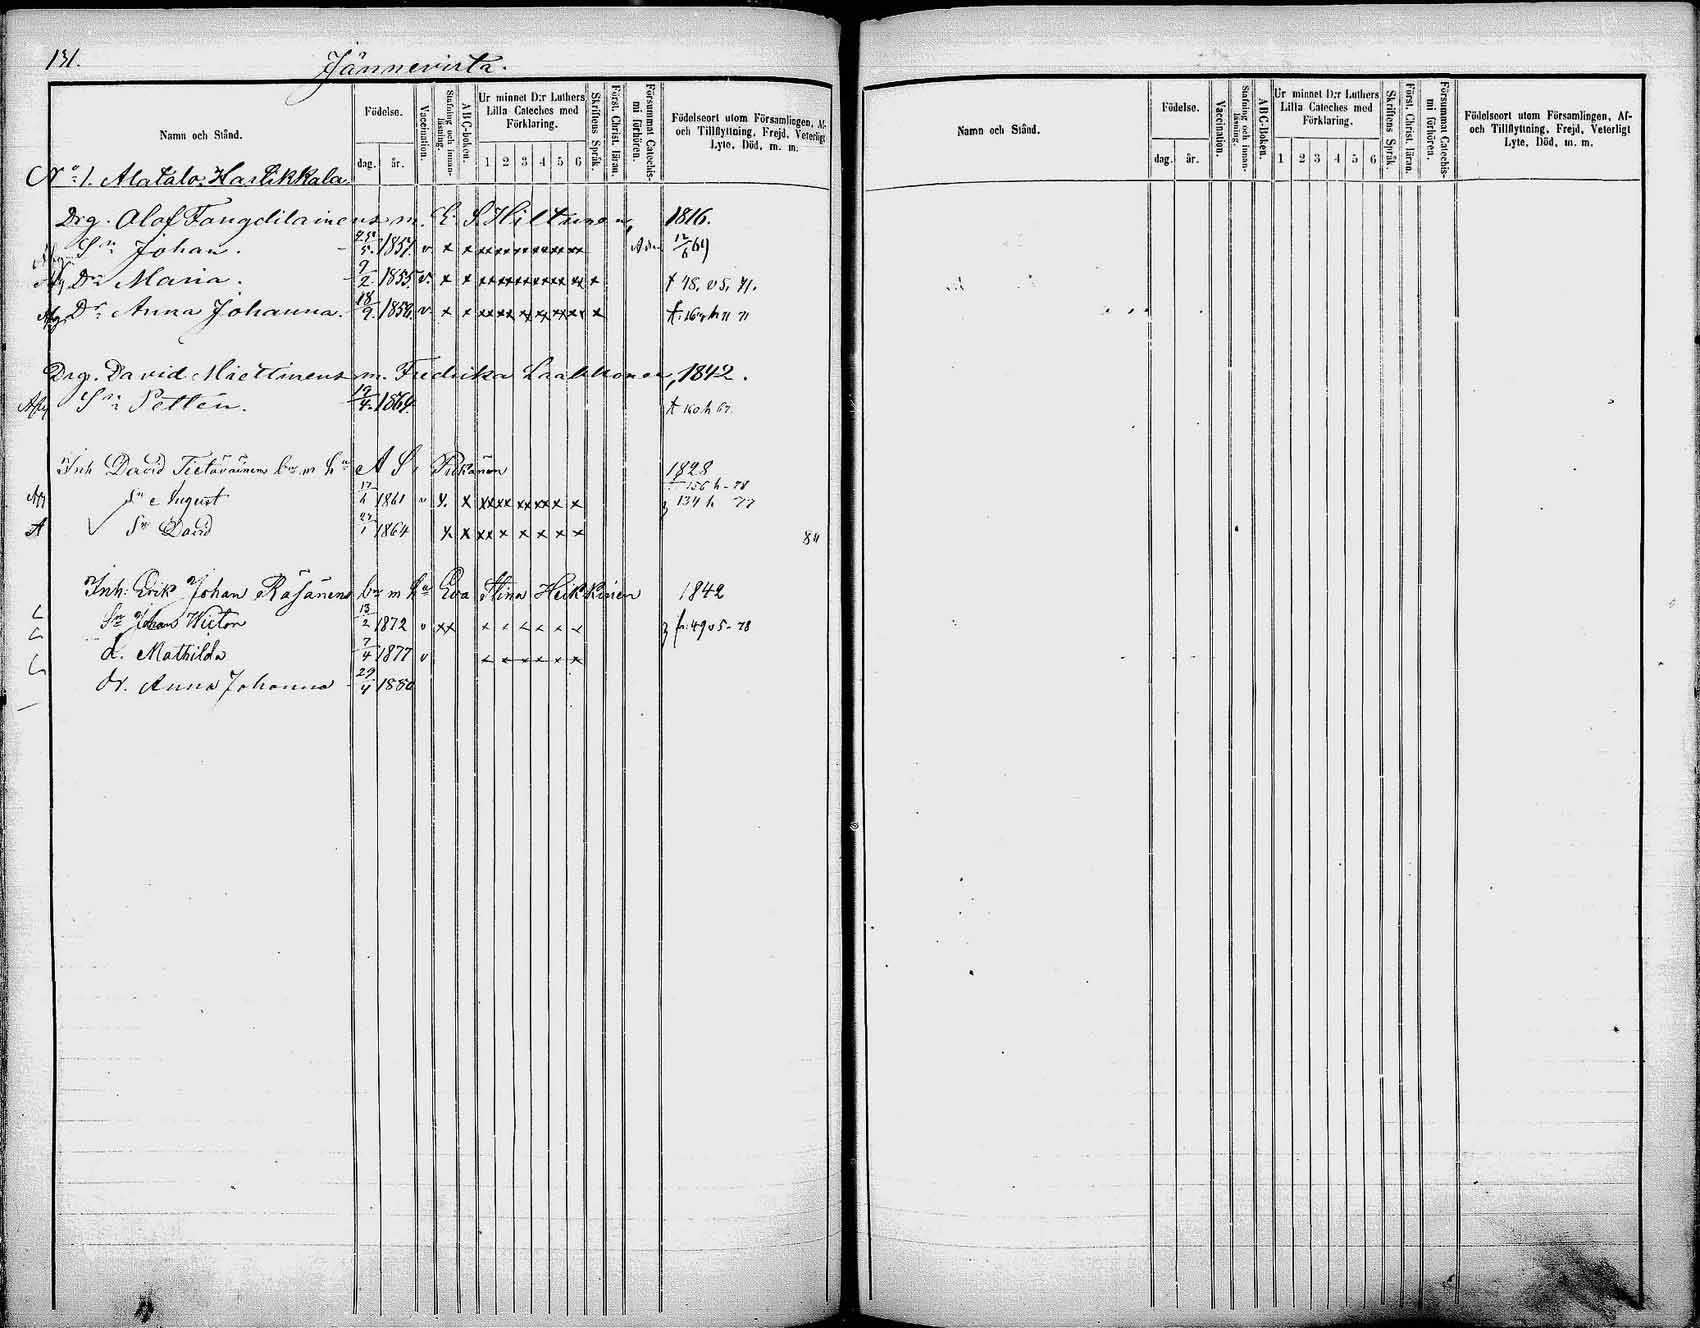 131.
Jännevirta.
Namn och Stånd.
Födelse.
dag. år.
Vaccination.
Stafning och innan-läsning.
ABC-boken.
Ur minnet D:r Luthers Lilla Cateches med Förklaring.
1 2 3 4 5 6
Skriftens Språk.
Först. Christ. läran.
Försummat Catechis-mi förhören.
Födelseort utom Församlingen, Af- och Tillflyttning, Frejd, Veterligt Lyte, Död, m. m.
No 1. Alatalo. Hartikkala.
Drg. Olof m. E. S. Hiltunen, 1816.
Sn Johan. 1857. v x x xx xx xx xx xx xx
Dr Maria. 9/2 1855. v. x x xx xx xx xx xx xx x
Dr Anna Johanna. 18/9 1856. v x x xx xx xx xx xx xx x
Drg. David Miettinens m. Fredrika Laakkonen, 1842.
Sn Petter. 19/4 1864.
Inh David Tietäväinens br m hu A S. Pitkänen 1828
Sn August 17/ 1861 v x. x xx xx xx xx x x 134 h 77
A Sn David 27/1 1864 x x xx x x x x x
84
Inh: Erik Johan Räsänens br m hu Eva Stina Heikkinen 1842
Sn Johan Wictor 13/2 1872 v xx x x x x x x fr: 49 v 5 - 78
d. Mathilda 7/4 1877 v x x x x x x
dr. Anna Johanna 29/4 1880
Namn och Stånd.
Födelse.
dag. år.
Vaccination.
Stafning och innan-läsning.
ABC-Boken.
Ur minnet D:r Luthers Lilla Cateches med Förklaring.
1 2 3 4 5 6
Skriftens Språk.
Först. Christ. läran.
Försummat Catechis-mi förhören.
Födelseort utom Församlingen, Af- och Tillflyttning, Frejd, Veterligt Lyte, Död, m. m.